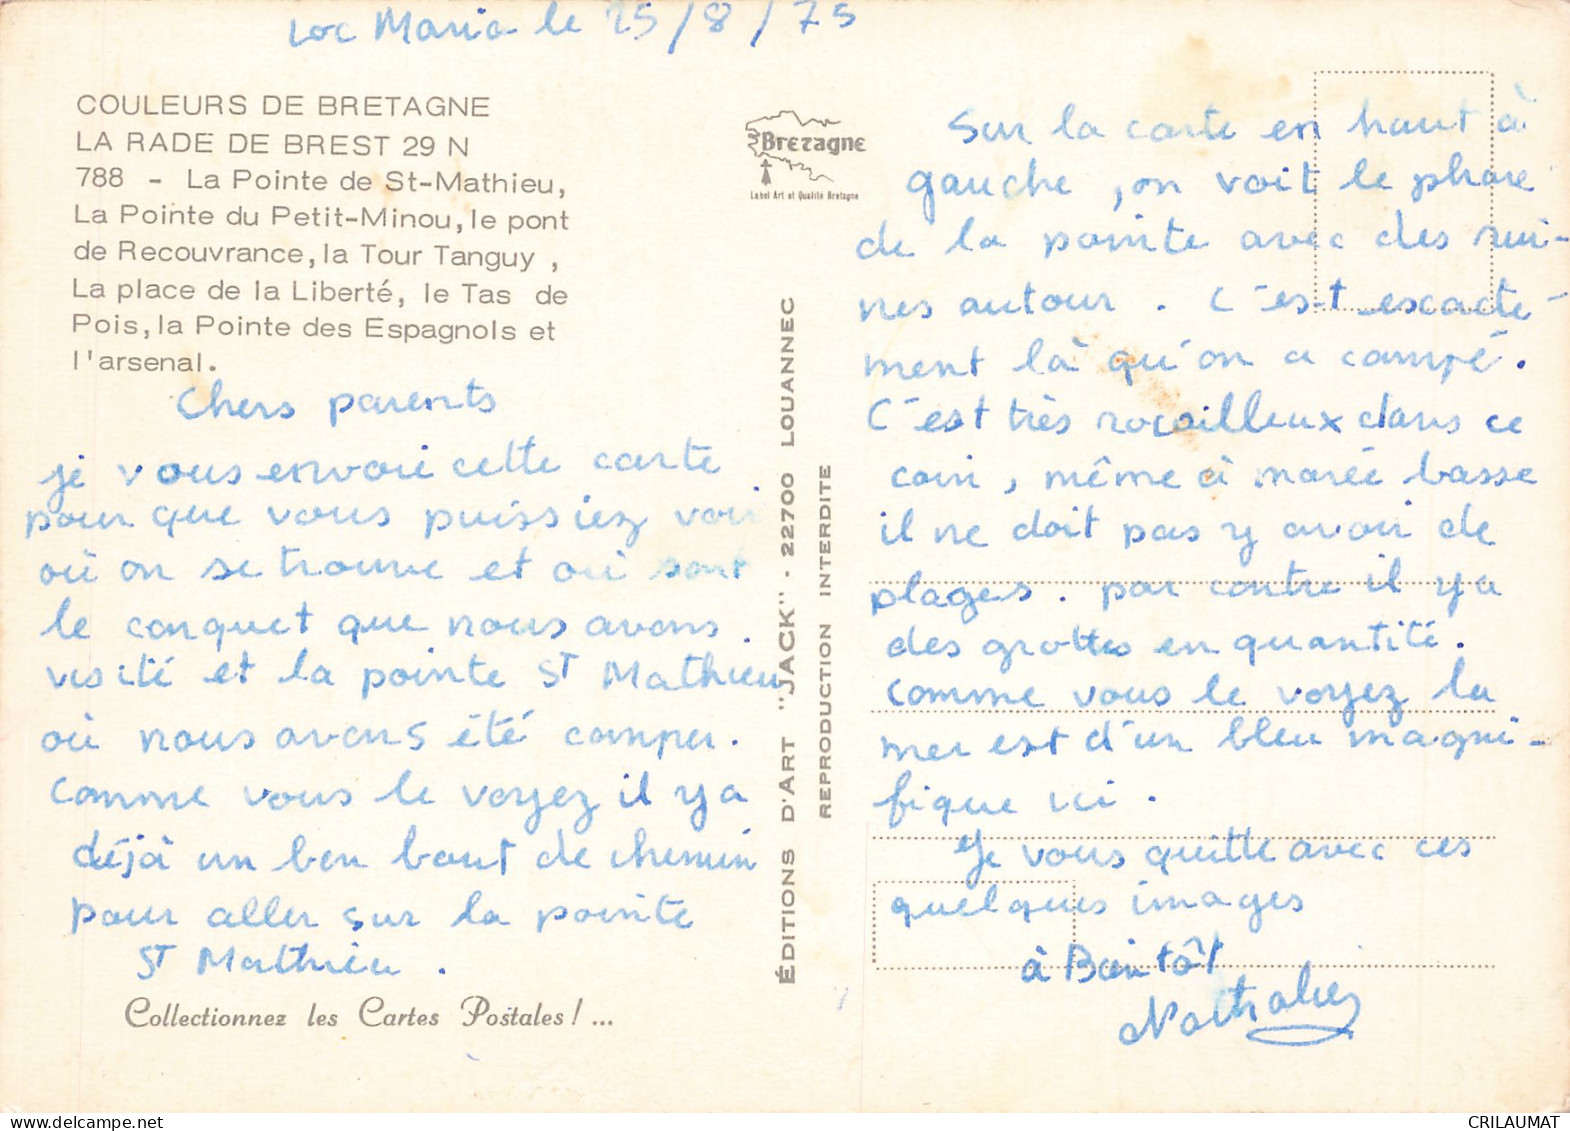 Loc Maria le 25/8/75
COULEURS DE BRETAGNE
LA RADE DE BREST 29 N
788 - La Pointe de St-Mathieu,
La Pointe du Petit-Minou, le pont
de Recouvrance, la Tour Tanguy ,
La place de la Liberté, le Tas de
Pois, la Pointe des Espagnols et
l'arsenal.
Chers parents
je vous envoie cette carte
pour que vous puissiez voir
où on se trouve et où sont
le conquet que nous avons
visité et la pointe ST Mathieu
où nous avons été camper.
Comme vous le voyez il y a
déjà un bon bout de chemin
pour aller sur la pointe
ST Mathieu .
Collectionnez les Cartes Postales ! ...
Bretagne
Label Art et Qualité Bretagne
ÉDITIONS D'ART "JACK" - 22700 LOUANNEC
REPRODUCTION INTERDITE
Sur la carte en haut à
gauche , on voit le phare
de la pointe avec des rui-
nes autour . C'est exacte-
ment là qu'on a campé .
C'est très rocailleux dans ce
coin , même à marée basse
il ne doit pas y avoir de
plages . par contre il y a
des grottes en quantité .
comme vous le voyez la
mer est d'un bleu magni-
fique ici .
Je vous quitte avec ces
quelques images
à Bientôt
Nathalie
CRILAUMAT